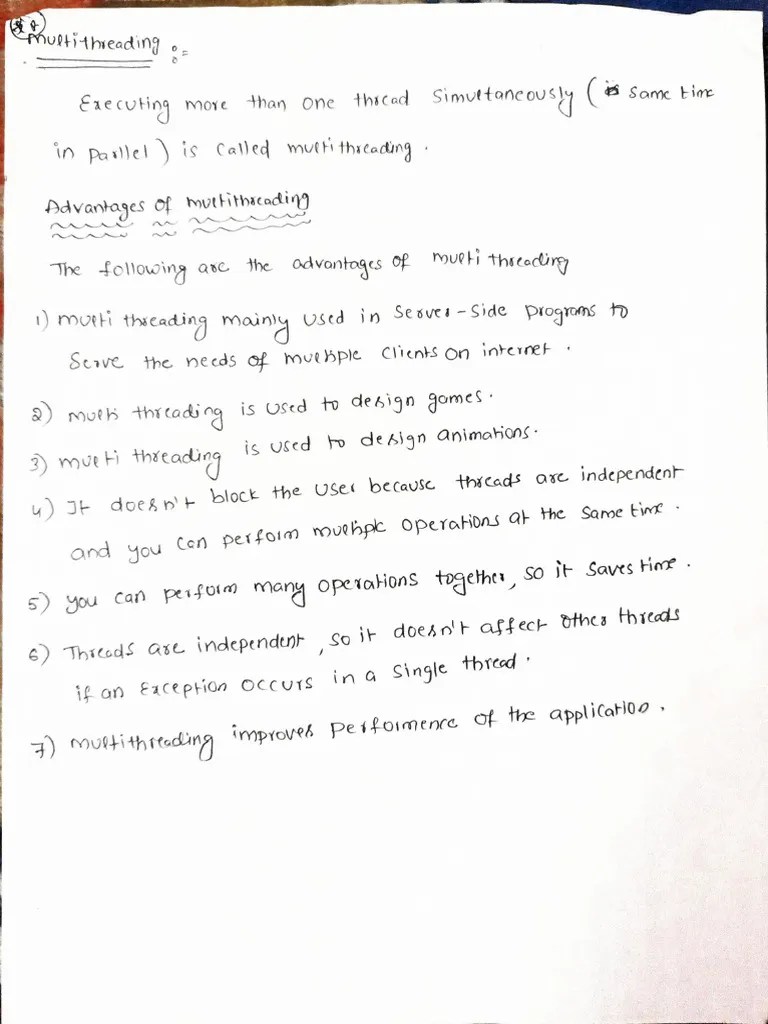 Multithreading :=
Executing more than one thread simultaneously ( same time
in parllel ) is called multi threading .
Advantages of multithreading
The following are the advantages of multi threading
1) multi threading mainly used in server-side programs to
serve the needs of multiple clients on internet .
2) multi threading is used to design games .
3) multi threading is used to design animations .
4) It doesn't block the user because threads are independent
and you can perform multiple operations at the same time .
5) you can perform many operations together, so it saves time .
6) Threads are independent, so it doesn't affect other threads
if an Exception occurs in a single thread .
7) multithreading improves performence of the application .